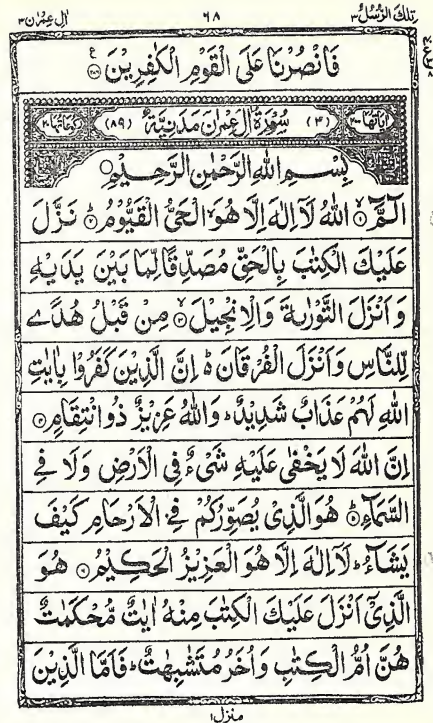 تِلْكَ الرُّسُلُ ٣ ٦٨ اٰل عِمْرٰن ٣
فَانْصُرْنَا عَلَى الْقَوْمِ الْكٰفِرِيْنَ
اٰيَاتُهَا ٢٠٠ (٣) سُوْرَةُ اٰلِ عِمْرٰنَ مَدَنِيَّةٌ (٨٩) رُكُوْعَاتُهَا ٢٠
بِسْمِ اللّٰهِ الرَّحْمٰنِ الرَّحِيْمِ
الٓمّٓ ۝ اللّٰهُ لَآ اِلٰهَ اِلَّا هُوَ الْحَيُّ الْقَيُّوْمُ ۝ نَزَّلَ
عَلَيْكَ الْكِتٰبَ بِالْحَقِّ مُصَدِّقًا لِّمَا بَيْنَ يَدَيْهِ
وَاَنْزَلَ التَّوْرٰىةَ وَالْاِنْجِيْلَ ۝ مِنْ قَبْلُ هُدًى
لِّلنَّاسِ وَاَنْزَلَ الْفُرْقَانَ ؕ اِنَّ الَّذِيْنَ كَفَرُوْا بِاٰيٰتِ
اللّٰهِ لَهُمْ عَذَابٌ شَدِيْدٌ ؕ وَاللّٰهُ عَزِيْزٌ ذُو انْتِقَامٍ ۝
اِنَّ اللّٰهَ لَا يَخْفٰى عَلَيْهِ شَيْءٌ فِي الْاَرْضِ وَلَا فِي
السَّمَآءِ ۝ هُوَ الَّذِيْ يُصَوِّرُكُمْ فِي الْاَرْحَامِ كَيْفَ
يَشَآءُ ؕ لَآ اِلٰهَ اِلَّا هُوَ الْعَزِيْزُ الْحَكِيْمُ ۝ هُوَ
الَّذِيْٓ اَنْزَلَ عَلَيْكَ الْكِتٰبَ مِنْهُ اٰيٰتٌ مُّحْكَمٰتٌ
هُنَّ اُمُّ الْكِتٰبِ وَاُخَرُ مُتَشٰبِهٰتٌ ؕ فَاَمَّا الَّذِيْنَ
منزل ١